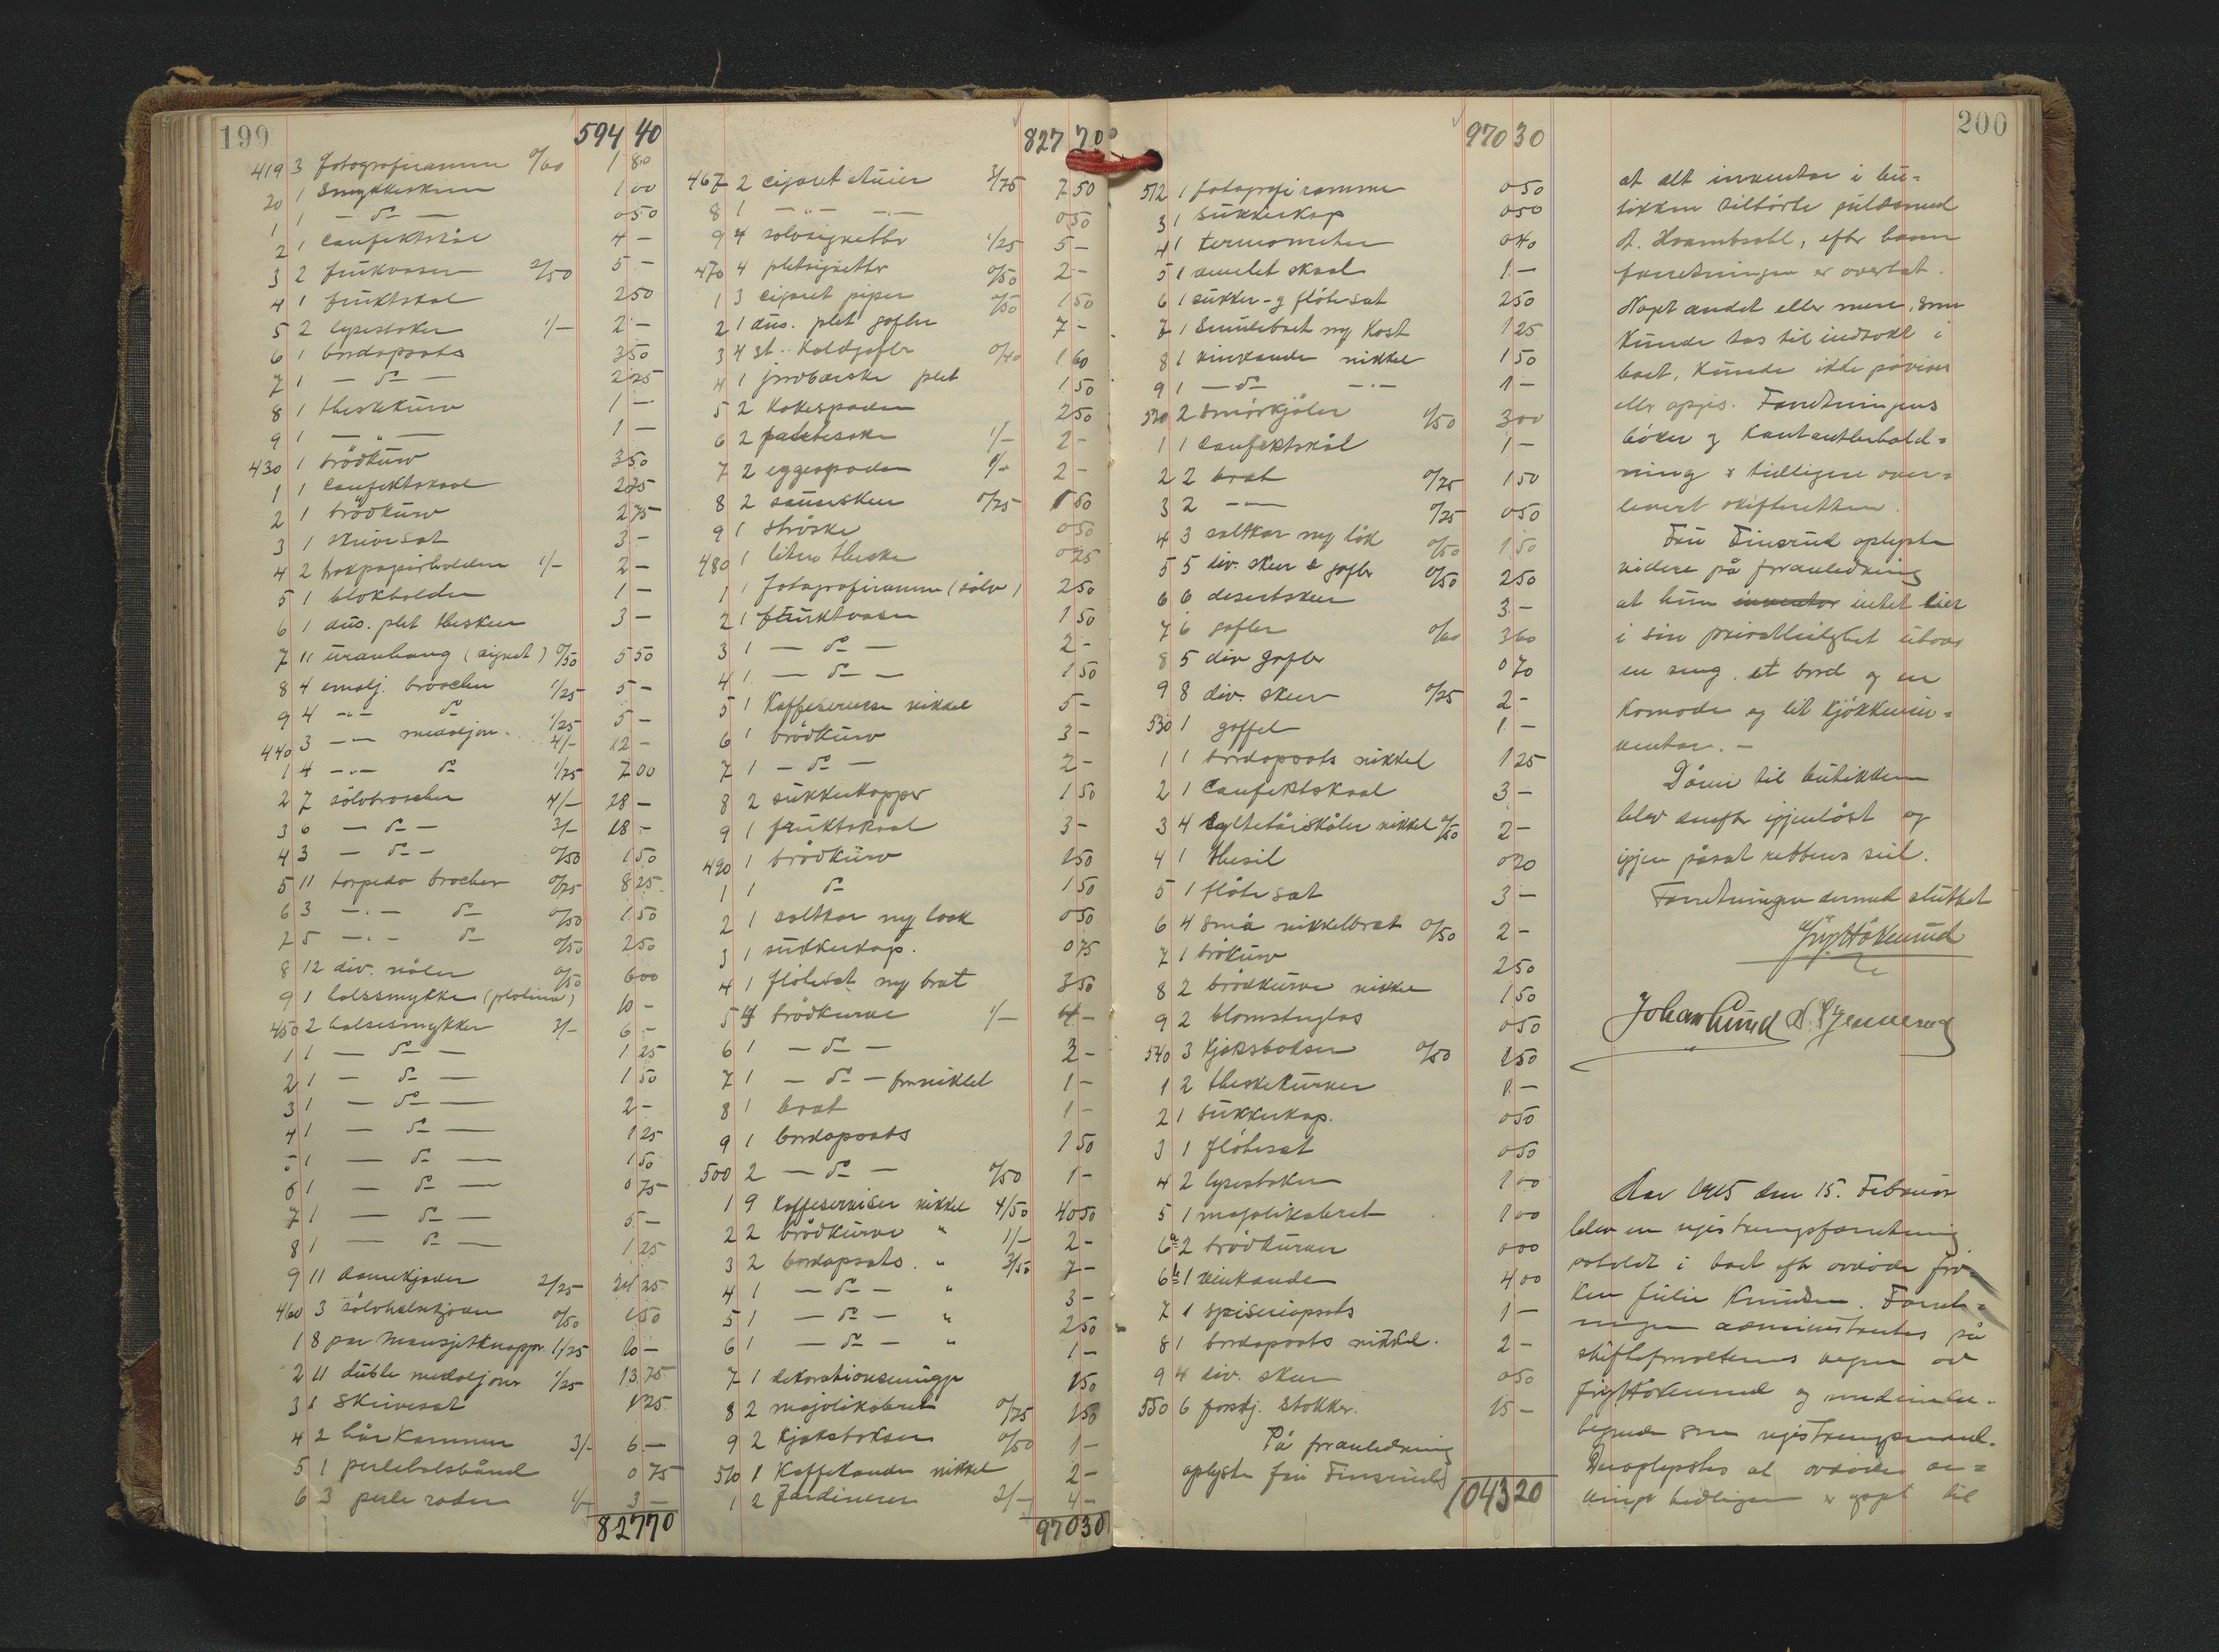 199
594 40
419 3 fotografirammer 0/60 1 80
20 1 Smykkeskrin 1 00
1 1 — do — 0 50
2 1 Confektskål 4 —
3 2 fruktvaser 2/50 5 —
4 1 fruktskal 2 50
5 2 lysestaker 1/— 2 —
6 1 bordopsats 3 50
7 1 — do — 2 25
8 1 theskekurv 1 —
9 1 — " — 1 —
430 1 brödkurv 3 50
1 1 Confektskaal 2 25
2 1 brödkurv 2 75
3 1 skrivesat 3 —
4 2 trækpapirholdere 1/— 2 —
5 1 blokholder 1 —
6 1 dus. plet theskeer 3 —
7 11 uranhang (signet) 0/50 5 50
8 4 emalj. broscher 1/25 5 —
9 4 -"- do 1/25 5 —
440 3 -"- medaljon. 4/- 12 —
1 4 -"- do 1/75 7 00
2 7 sölvbroscher 4/- 28 —
3 6 — do — 3/- 18 —
4 3 — do — 0/50 1 50
5 11 torpedo brocher 0/75 8 25
6 3 -"- do 0/50 1 50
7 5 -"- do 0/50 2 50
8 12 div. nåler 0/50 6 00
9 1 halssmykke (platina) 10 —
450 2 halsesmykker 3/- 6 —
1 1 — do — 1 25
2 1 — do — 1 50
3 1 — do — 2 -
4 1 — do — 1 25
5 1 — do — 1 50
6 1 — do — 0 75
7 1 — do — 5 —
8 1 — do — 1 25
9 11 damekjeder 2/25 24 25
460 3 sölvhalskjeder 0/50 1 50
1 8 par Mansjetknapper 1/25 10 —
2 11 duble medaljoner 1/25 13 75
3 1 Skrivesat 1 25
4 2 hårkammer 3/- 6 —
5 1 perlehalsbånd 0 75
6 3 perle rader 1/- 3 —
827 70
827 70
467 2 cigaret etuier 3/75 7 50
8 1 -"- -"- 0 50
9 4 sölvsignetter 1/25 5 —
470 4 pletsignetter 0/50 2 -
1 3 cigaret piper 0/50 1 50
2 1 dus. plet gafler 7 -
3 4 st. Koldgafler 0/40 1 60
4 1 jordbærske plet 1 50
5 2 Kakespader 2 50
6 2 1/- 2 -
7 2 eggespader 1/- 2 -
8 2 sauceskeer 0/75 1 50
9 1 ströske 0 50
480 1 liten theske 0 25
1 1 fotografiramme (sölv) 2 50
2 1 fruktvase 1 50
3 1 — do — 2 -
4 1 — do — 1 50
5 1 Kaffeservise nikkel 5 -
6 1 brödkurv 3 -
7 1 — do — 2 -
8 2 sukkerkopper 1 50
9 1 fruktskaal 3 -
490 1 brödkurv 2 50
1 1 do 1 50
2 1 saltkar m/ laak 0 50
3 1 sukkerkop. 0 75
4 1 flötesat m/ brat 3 50
5 4 brödkurve 1/— 4 -
6 1 — do — 3 -
7 1 — do — fornikkel 1 -
8 1 brat 1 -
9 1 bordopsats 1 50
500 2 — do — 0/50 1 -
1 9 Kaffeserviser nikkel 4/50 40 50
2 2 brödkurve " 1/- 2 -
3 2 bordopsats. " 3/50 7 -
4 1 — do — " 3 -
5 1 — do — " 2 50
6 1 — do — " 1 -
7 1 dekorationsmugge 1 50
8 2 majolikabret 0/75 1 50
9 2 Kjeksbokser 0/50 1 -
510 1 Kaffekande nikkel 2 -
1 2 Jardinerer 2/- 4 -
970 30
970 30
512 1 fotografi ramme 0 50
3 1 sukkerkop 0 50
4 1 termometer 0 40
5 1 skaal 1 -
6 1 sukker- g flötesat 2 50
7 1 Smulebret m/ Kost 1 25
8 1 vinkande nikkel 1 50
9 1 — do — -"- 1 -
520 2 Smörkjöler 1/50 3 00
1 1 Confektskål 1 -
2 2 brat 0/75 1 50
3 2 -"- 0/25 0 50
4 3 saltkar m/ låk 0/50 1 50
5 5 div. skeer & gafler 0/50 2 50
6 6 desertskeer 3 -
7 6 gafler 0/60 3 60
8 5 div gafler 0 70
9 8 div. skeer 0/25 2 -
530 1 gaffel 1 -
1 1 bordopsats nikkel 1 25
2 1 Confektskaal 3 -
3 4 syltetöiskåler nikkel 0/50 2 -
4 1 thesil 0 20
5 1 flötesat 3 -
6 4 små nikkelbrat 0/50 2 -
7 1 brökurv 2 50
8 2 brödkurve nikkel 1 50
9 2 blomsterglas 0 50
540 3 Kjeksbokser 0/50 1 50
1 2 theskekurver 1 -
2 1 sukkerkop. 0 50
3 1 flötesat 0 50
4 2 lysestaker 1 00
5 1 majolikabret 1 00
6a 2 brödkurver 0 00
6b 1 vinkande 4 00
7 1 spiseriopsats 1 -
8 1 bordopsats nikkel. 2 -
9 4 div. skeer 0 50
550 6 forskj. Stokker. 15 -
På foranledning
oplyste fru Finsrud
1043 20
200
at alt inventar i bu-
tikken tilhörte guldsmed
A. Hvambsahl, efter hvem
forretningen er overtat.
Noget andet eller mere, som
Kunde tas til indtækt i
boet, kunde ikke påvises
eller opgis. Forretningens
böker g Contantbehold-
ning er tidligere over-
levert skifteretten.
Fru Finsrud oplyste
videre på foranledning
at hun inventar intet eier
i sin privatleilighet utover
en seng, et bord og en
Komode og lit kjökkenin-
ventar. —
Dören til butikken
blev derefter igjenlåst og
igjen påsat rettens seil.
Forretningen dermed sluttet
Johan Lund
Aar 1915 den 15. Februar
blev en registreringsforretning
avholdt i boet efter avdöde frö-
ken Julie Knudsen. Forret-
ningen administrertes på
skifteforvalterens vegne av
og undertegn-
begnede som registreringsmænd.
Deroplystes at avdöde
tidligere er gaat til